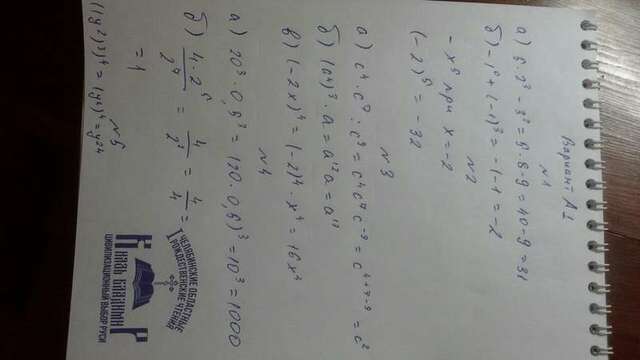 Вариант А1
№1
а) 5·2³-3²=5·8-9=40-9=31
б) -1⁰+(-1)³=-1-1=-2
№2
-x⁵ при x=-2
(-2)⁵=-32
№3
а) c⁴·c⁷:c⁹=c⁴c⁷c⁻⁹=c⁴⁺⁷⁻⁹=c²
б) (a⁴)³·a=a¹²a=a¹³
в) (-2x)⁴=(-2)⁴·x⁴=16x⁴
№4
а) 20³·0,5³=(20·0,5)³=10³=1000
б) 4·2⁵/2⁷=4/2²=4/4=
=1
№5
ЧЕЛЯБИНСКИЕ ОБЛАСТНЫЕ
РОЖДЕСТВЕНСКИЕ ЧТЕНИЯ
КНЯЗЬ ВЛАДИМИР
ЦИВИЛИЗАЦИОННЫЙ ВЫБОР РУСИ